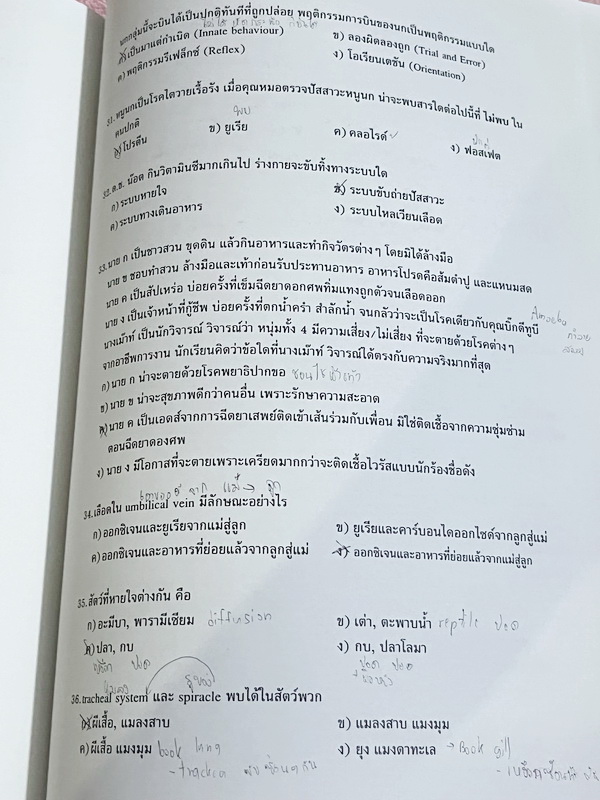 นกกลุ่มนี้จะบินได้เป็นปกติทันทีที่ถูกปล่อย พฤติกรรมการบินของนกเป็นพฤติกรรมแบบใด
ก) เป็นมาแต่กำเนิด (Innate behaviour) ข) ลองผิดลองถูก (Trial and Error)
ค) พฤติกรรมรีเฟล็กซ์ (Reflex) ง) โอเรียนเตชัน (Orientation)
31. หนูนกเป็นโรคไตวายเรื้อรัง เมื่อคุณหมอตรวจปัสสาวะหนูนก น่าจะพบสารใดต่อไปนี้ที่ ไม่พบ ใน
คนปกติ พบ ปกติ
ก) โปรตีน ข) ยูเรีย ค) คลอไรด์ ง) ฟอสเฟต
32. ด.ช. น๊อต กินวิตามินซีมากเกินไป ร่างกายจะขับทิ้งทางระบบใด
ก) ระบบหายใจ ข) ระบบขับถ่ายปัสสาวะ
ค) ระบบทางเดินอาหาร ง) ระบบไหลเวียนเลือด
33. นาย ก เป็นชาวสวน ขุดดิน แล้วกินอาหารและทำกิจวัตรต่างๆ โดยมิได้ล้างมือ
นาย ข ชอบทำสวน ล้างมือและเท้าก่อนรับประทานอาหาร อาหารโปรดคือส้มตำปู และแหนมสด
นาย ค เป็นสัปเหร่อ บ่อยครั้งที่เข็มฉีดยาดอกศพทิ่มแทงถูกตัวจนเลือดออก
นาย ง เป็นเจ้าหน้าที่กู้ชีพ บ่อยครั้งที่ตกน้ำครำ สำลักน้ำ จนกลัวว่าจะเป็นโรคเดียวกับคุณบิ๊กดีทูบี Amoeba
นางเม้าท์ เป็นนักวิจารณ์ วิจารณ์ว่า หนุ่มทั้ง 4 มีความเสี่ยง/ไม่เสี่ยง ที่จะตายด้วยโรคต่างๆ
จากอาชีพการงาน นักเรียนคิดว่าข้อใดที่นางเม้าท์ วิจารณ์ได้ตรงกับความจริงมากที่สุด
ก) นาย ก น่าจะตายด้วยโรคพยาธิปากขอ
ข) นาย ข น่าจะสุขภาพดีกว่าคนอื่น เพราะรักษาความสะอาด
ค) นาย ค เป็นเอดส์จากการฉีดยาเสพย์ติดเข้าเส้นร่วมกับเพื่อน มิใช่ติดเชื้อจากความซุ่มซ่าม
ตอนฉีดยาดองศพ
ง) นาย ง มีโอกาสที่จะตายเพราะเครียดมากกว่าจะติดเชื้อไวรัสแบบนักร้องชื่อดัง
34. เลือดใน umbilical vein มีลักษณะอย่างไร
ก) ออกซิเจนและยูเรียจากแม่สู่ลูก ข) ยูเรียและคาร์บอนไดออกไซด์จากลูกสู่แม่
ค) ออกซิเจนและอาหารที่ย่อยแล้วจากลูกสู่แม่ ง) ออกซิเจนและอาหารที่ย่อยแล้วจากแม่สู่ลูก
35. สัตว์ที่หายใจต่างกัน คือ
ก) อะมีบา, พารามีเซียม diffusion ข) เต่า, ตะพาบน้ำ reptile ปอด
ค) ปลา, กบ ง) กบ, ปลาโลมา
ปอด ปอด ปอด
36. tracheal system และ spiracle พบได้ในสัตว์พวก
ก) ผีเสื้อ, แมลงสาบ ข) แมลงสาบ แมงมุม
ค) ผีเสื้อ แมงมุม book lung ง) ยุง แมงดาทะเล → Book gill